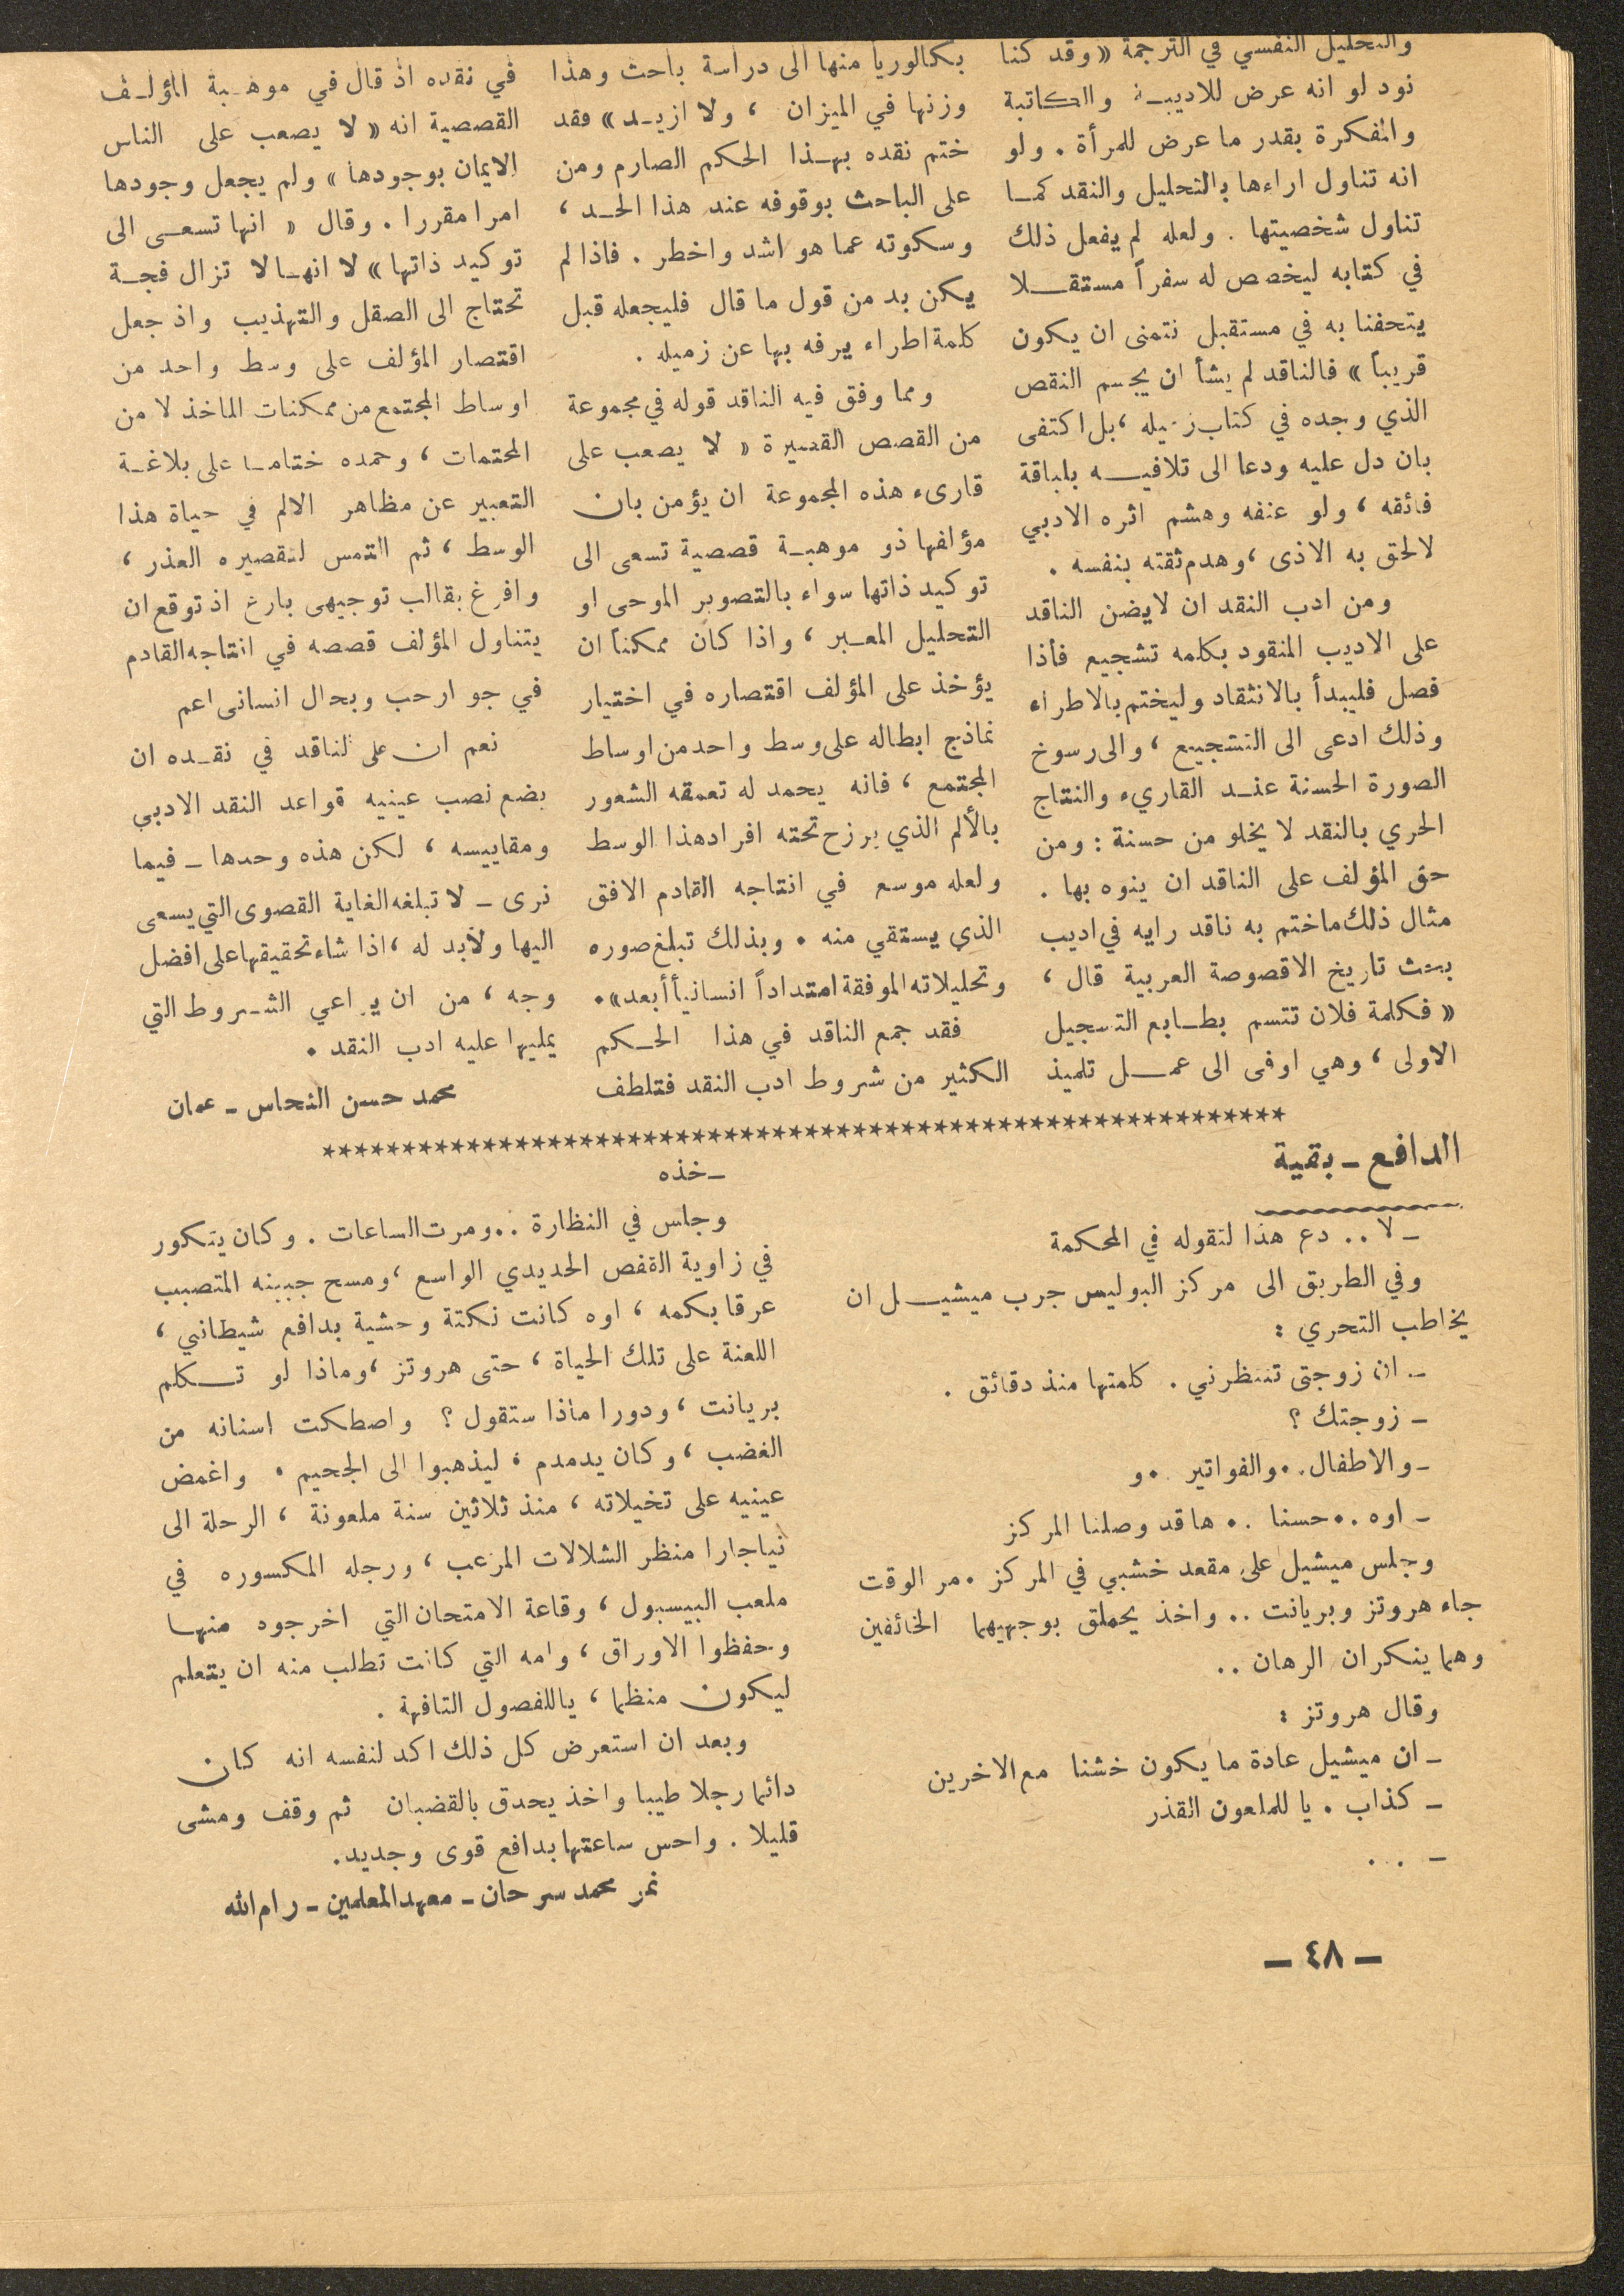 والتحليل النفسي في الترجمة « وقد كنا
نود لو انه عرض للاديبة والكاتبة
والمفكرة بقدر ما عرض للمرأة . ولو
انه تناول اراءها بالتحليل والنقد كما
تناول شخصيتها . ولعله لم يفعل ذلك
في كتابه ليخصص له سفراً مستقلا
يتحفنا به في مستقبل نتمنى ان يكون
قريباً » فالناقد لم يشأ ان يجسم النقص
الذي وجده في كتاب زميله ، بل اكتفى
بان دل عليه ودعا الى تلافيه بلباقة
فائقه ، ولو عنفه وهشم اثره الادبي
لالحق به الاذى ، وهدم ثقته بنفسه .
ومن ادب النقد ان لايضن الناقد
على الاديب المنقود بكلمه تشجيع فأذا
فصل فليبدأ بالانتقاد وليختم بالاطراء
وذلك ادعى الى التشجيع ، والى رسوخ
الصورة الحسنة عند القارىء والنتاج
الحري بالنقد لا يخلو من حسنة : ومن
حق المؤلف على الناقد ان ينوه بها .
مثال ذلك ماختم به ناقد رايه في اديب
بحث تاريخ الاقصوصة العربية قال ،
« فكلمة فلان تتسم بطابع التسجيل
الاولى ، وهي اوفى الى عمل تلميذ
بكالوريا منها الى دراسة باحث وهذا
وزنها في الميزان ، ولا ازيد » فقد
ختم نقده بهذا الحكم الصارم ومن
على الباحث بوقوفه عند هذا الحد ،
وسكوته عما هو اشد واخطر . فاذا لم
يكن بد من قول ما قال فليجعله قبل
كلمة اطراء يرفه بها عن زميله .
ومما وفق فيه الناقد قوله في مجموعة
من القصص القصيرة « لا يصعب على
قارىء هذه المجموعة ان يؤمن بان
مؤلفها ذو موهبة قصصية تسعى الى
توكيد ذاتها سواء بالتصوير الموحى او
التحليل المعبر ، واذا كان ممكناً ان
يؤخذ على المؤلف اقتصاره في اختيار
نماذج ابطاله على وسط واحد من اوساط
المجتمع ، فانه يحمد له تعمقه الشعور
بالألم الذي يرزح تحته افراد هذا الوسط
ولعله موسع في انتاجه القادم الافق
الذي يستقي منه . وبذلك تبلغ صوره
وتحليلاته الموفقة امتداداً انسانياً أبعد » .
فقد جمع الناقد في هذا الحكم
الكثير من شروط ادب النقد فتلطف
في نقده اذ قال في موهبة المؤلف
القصصية انه « لا يصعب على الناس
الايمان بوجودها » ولم يجعل وجودها
امرا مقررا . وقال « انها تسعى الى
توكيد ذاتها » لا انها لا تزال فجة
تحتاج الى الصقل والتهذيب واذ جعل
اقتصار المؤلف على وسط واحد من
اوساط المجتمع من ممكنات الماخذ لا من
المحتمات ، وحمده ختاما على بلاغة
التعبير عن مظاهر الالم في حياة هذا
الوسط ، ثم التمس لتقصيره العذر ،
وافرغ بقالب توجيهى بارع اذ توقع ان
يتناول المؤلف قصصه في انتاجه القادم
في جو ارحب وبحال انسانى اعم
نعم ان على الناقد في نقده ان
يضع نصب عينيه قواعد النقد الادبي
ومقاييسه ، لكن هذه وحدها - فيما
نرى - لا تبلغه الغاية القصوى التي يسعى
اليها ولابد له ، اذا شاء تحقيقها على افضل
وجه ، من ان يراعي الشروط التي
يمليها عليه ادب النقد .
محمد حسن النحاس - عمان
************************************************************
الدافع - بقية
- لا .. دع هذا لتقوله في المحكمة
وفي الطريق الى مركز البوليس جرب ميشيل ان
يخاطب التحري :
- ان زوجتى تنتظرني . كلمتها منذ دقائق .
- زوجتك ؟
- والاطفال .. والفواتير .. و
- اوه .. حسنا .. ها قد وصلنا المركز
وجلس ميشيل على مقعد خشبي في المركز . مر الوقت
جاء هروتز وبريانت .. واخذ يحملق بوجهيهما الخائفين
وهما ينكران الرهان ..
وقال هروتز :
- ان ميشيل عادة ما يكون خشنا مع الاخرين
- كذاب . يا للملعون القذر
- ...
- خذه
وجلس في النظارة .. ومرت الساعات . وكان يتكور
في زاوية القفص الحديدي الواسع ، ومسح جبينه المتصبب
عرقا بكمه ، اوه كانت نكتة وحشية بدافع شيطاني ،
اللعنة على تلك الحياة ، حتى هروتز ، وماذا لو تكلم
بريانت ، ودورا ماذا ستقول ؟ واصطكت اسنانه من
الغضب ، وكان يدمدم ، ليذهبوا الى الجحيم . واغمض
عينيه على تخيلاته ، منذ ثلاثين سنة ملعونة ، الرحلة الى
نياجارا منظر الشلالات المرعب ، ورجله المكسوره في
ملعب البيسبول ، وقاعة الامتحان التي اخرجوه منها
وحفظوا الاوراق ، وامه التي كانت تطلب منه ان يتعلم
ليكون منظما ، ياللفصول التافهة .
وبعد ان استعرض كل ذلك اكد لنفسه انه كان
دائما رجلا طيبا واخذ يحدق بالقضبان ثم وقف ومشى
قليلا . واحس ساعتها بدافع قوى وجديد .
نمر محمد سرحان - معهد المعلمين - رام الله
- ٤٨ -